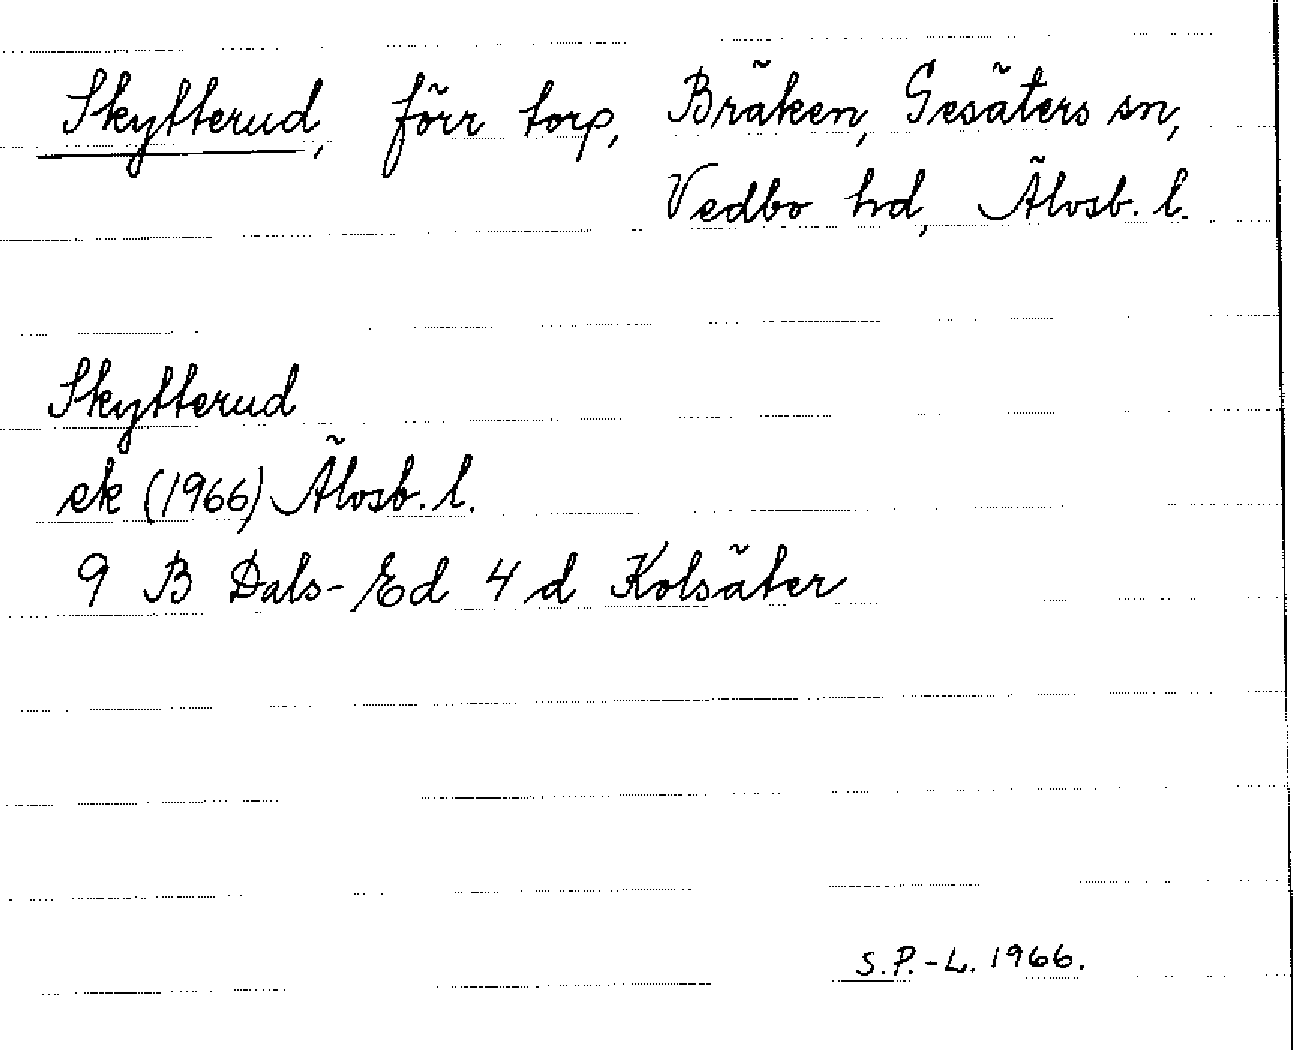 Skytterud, förr torp, Bräken, Gesäters sn,
Vedbo hd, Älvsb. l.
Skytterud
ek (1966) Älvsb. l.
9 B Dals-Ed 4 d Kolsäter
S.P.-L. 1966.